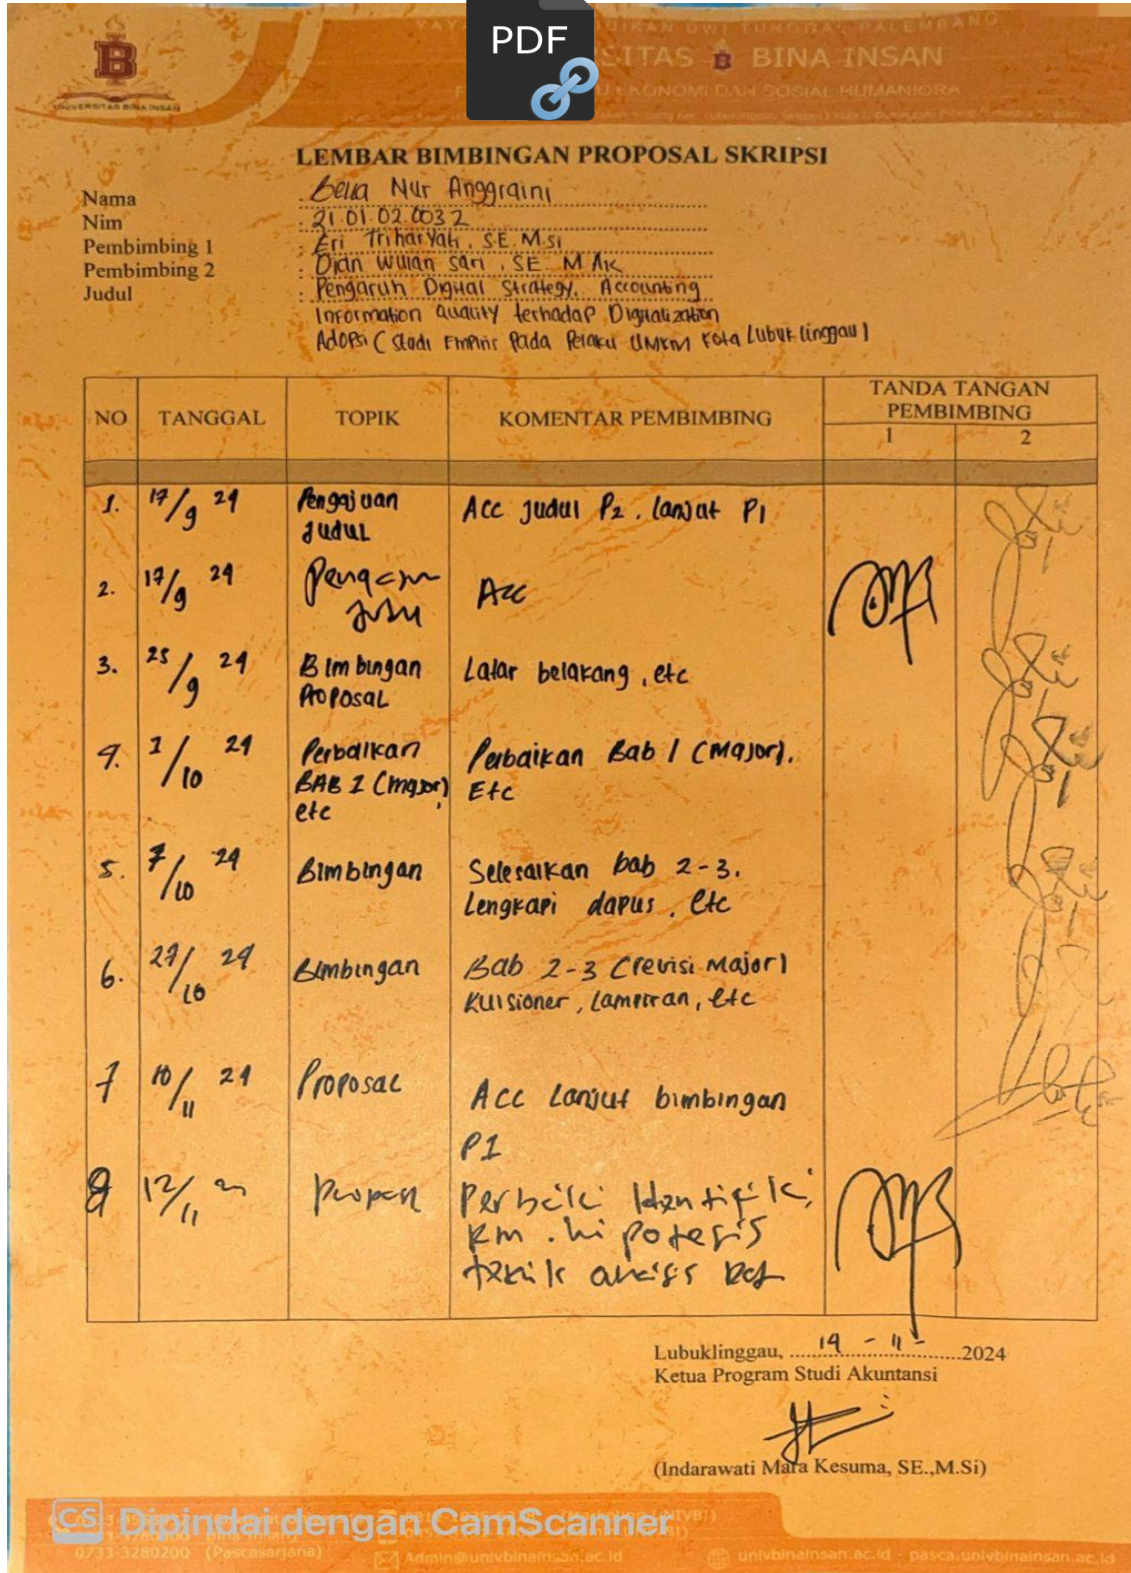 PDF
DIKAN DWI TUNGGAL PALEMBANG
SITAS BINA INSAN
EKONOMI DAN SOSIAL HUMANIORA
UNIVERSITAS BINA INSAN
LEMBAR BIMBINGAN PROPOSAL SKRIPSI
Nama : Bella Nur Anggraini
Nim : 21.01.02.0032
Pembimbing 1 : Eri Triharyati, SE.M.si
Pembimbing 2 : Dian Wulan sari, SE. M.Ak
Judul : Pengaruh Digital Strategy, Accounting
Information quality terhadap Digitalization
Adopsi (Studi Empiris Pada Pelaku UMKM Kota Lubuklinggau)
NO TANGGAL TOPIK KOMENTAR PEMBIMBING TANDA TANGAN PEMBIMBING
1 2
1. 17/9 24 Pengajuan Judul Acc Judul P2. lanjut P1
2. 17/9 24 Acc
3. 25/9 24 Bimbingan Proposal Latar belakang, etc
4. 1/10 24 Perbaikan BAB 1 (major) etc Perbaikan Bab 1 (Major).
Etc
5. 7/10 24 Bimbingan Selesaikan bab 2-3.
Lengkapi dapus, etc
6. 27/10 24 Bimbingan Bab 2-3 (revisi Major)
Kuisioner, Lampiran, etc
7 10/11 24 Proposal Acc Lanjut bimbingan
P1
8 12/11 Perbaiki
hipotesis
Lubuklinggau, 19 - 11 - 2024
Ketua Program Studi Akuntansi
(Indarawati Mara Kesuma, SE.,M.Si)
CS Dipindai dengan CamScanner
0733-3280200 (Pascasarjana)
Admin@univbinainsan.ac.id
univbinainsan.ac.id - pasca.univbinainsan.ac.id